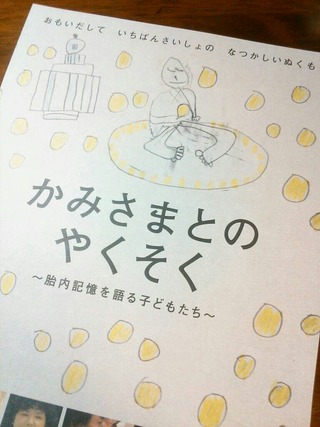 おもいだして いちばんさいしょの なつかしいぬくも
かみさまとの
やくそく
～胎内記憶を語る子どもたち～